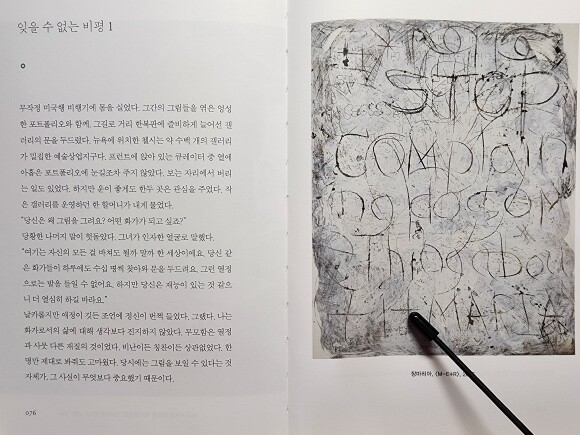 잊을 수 없는 비평 1
무작정 미국행 비행기에 몸을 실었다. 그간의 그림들을 엮은 엉성
한 포트폴리오와 함께. 그길로 거리 한복판에 즐비하게 늘어선 갤
러리의 문을 두드렸다. 뉴욕에 위치한 첼시는 약 수백 개의 갤러리
가 밀집한 예술상업지구다. 프런트에 앉아 있는 큐레이터 중 열에
아홉은 포트폴리오에 눈길조차 주지 않았다. 보는 자리에서 버리
는 일도 있었다. 하지만 운이 좋게도 한두 곳은 관심을 주었다. 작
은 갤러리를 운영하던 한 할머니가 내게 물었다.
“당신은 왜 그림을 그려요? 어떤 화가가 되고 싶죠?”
당황한 나머지 말이 헛돌았다. 그녀가 인자한 얼굴로 말했다.
“여기는 자신의 모든 걸 바쳐도 될까 말까 한 세상이에요. 당신 같
은 화가들이 하루에도 수십 명씩 찾아와 문을 두드려요. 그런 열정
으로는 발을 들일 수 없어요. 하지만 당신은 재능이 있는 것 같으
니 더 열심히 하길 바라요.”
날카롭지만 애정이 깃든 조언에 정신이 번쩍 들었다. 그랬다. 나는
화가로서의 삶에 대해 생각보다 진지하지 않았다. 무모함은 열정
과 사뭇 다른 재질의 것이었다. 비난이든 칭찬이든 상관없었다. 한
명만 제대로 봐줘도 고마웠다. 당시에는 그림을 보일 수 있다는 것
자체가, 그 사실이 무엇보다 중요했기 때문이다.
076
STOP
COMPLAIN
장마리아,